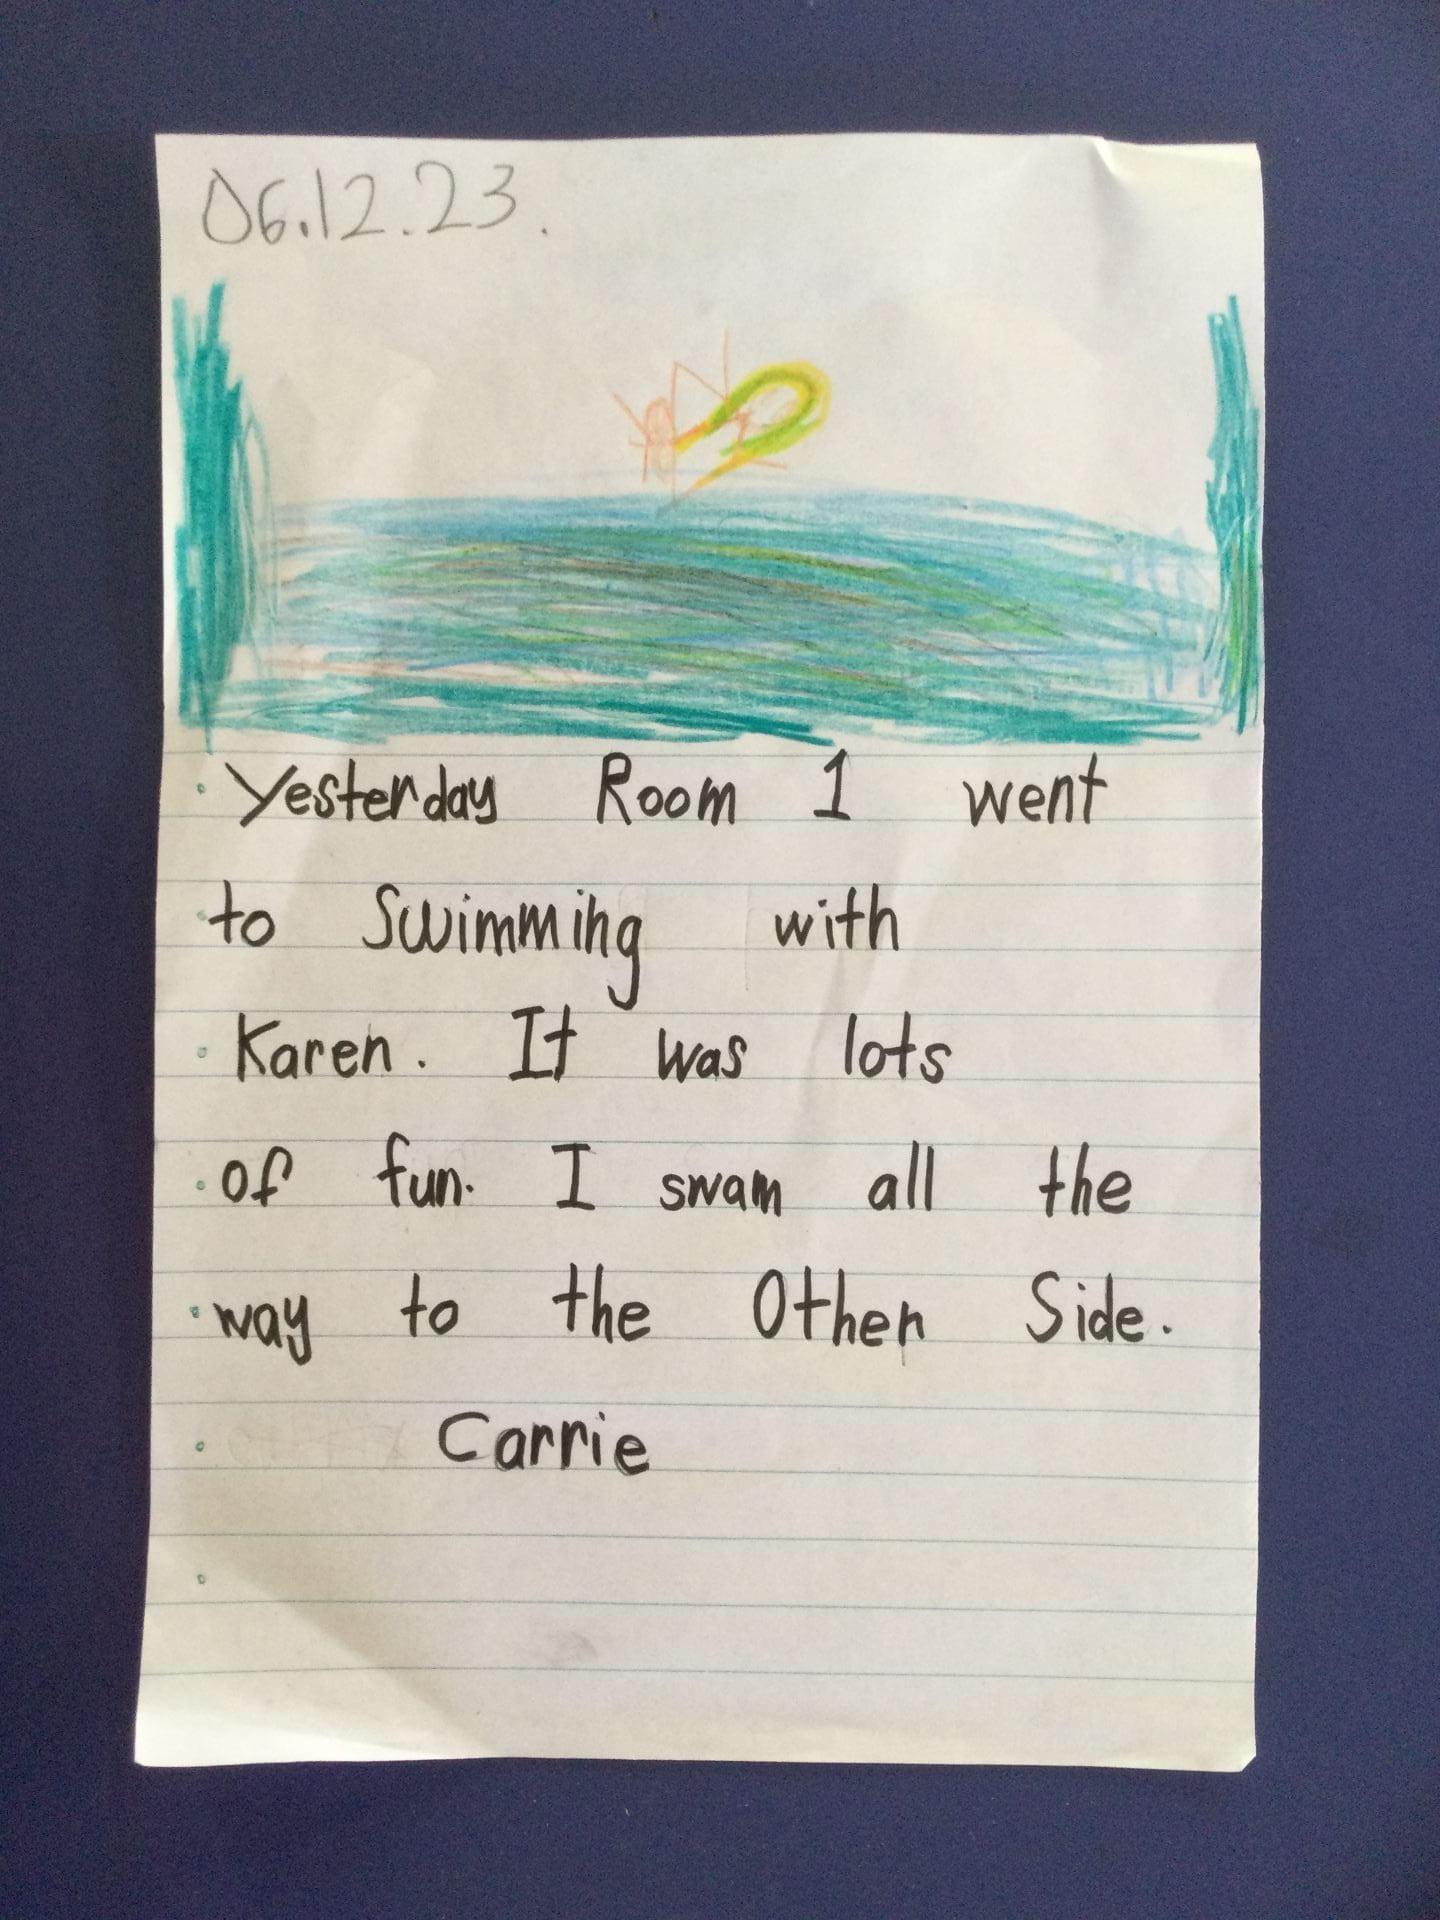 06.12.23.
Yesterday Room 1 went
to Swimming with
Karen. It was lots
of fun. I swam all the
way to the Other Side.
Carrie